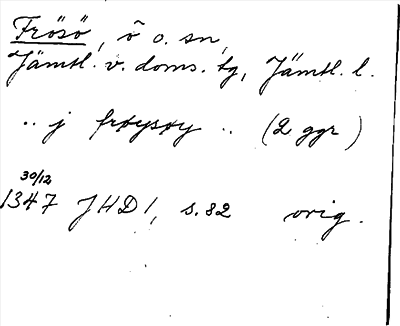 Frösö, ö o. sn,
Jämtl. v. doms. tg, Jämtl. l.
.. j frøysøy .. (2 ggr)
30/12
1347 JHD 1, s. 82 orig.